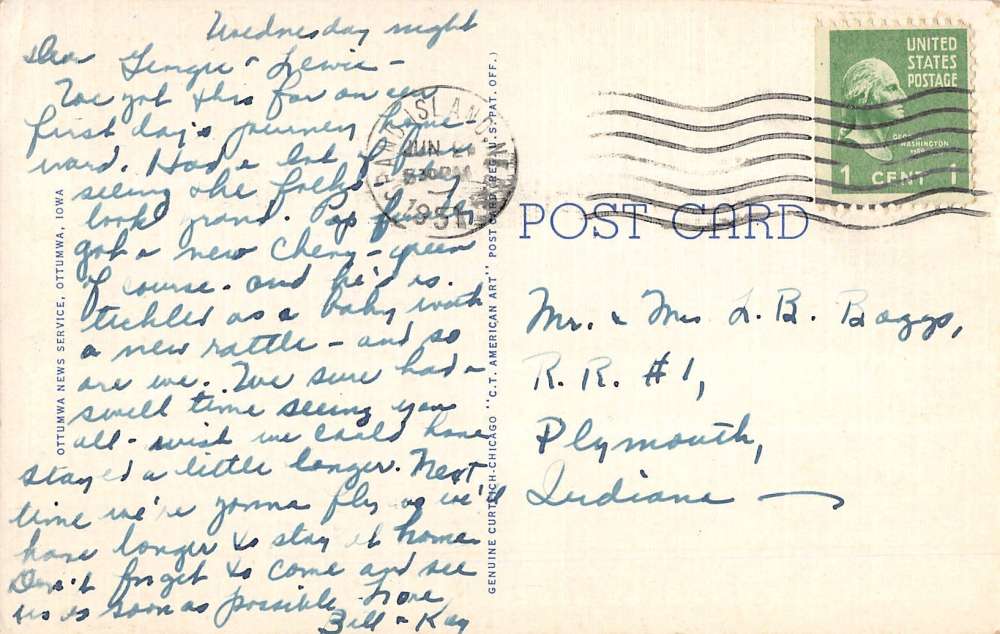 Wednesday night
Dear Georgie & Lewie -
We got this far on our
first day's journey home-
ward. Had a lot of fun
seeing the folks. They
look grand. Pop finally
got a new Chevy - green
of course - and he's as
tickled as a baby with
a new rattle - and so
are we. We sure had a
swell time seeing you
all - wish we could have
stayed a little longer. Next
time we're gonna fly so we'll
have longer to stay at home.
Don't forget to come and see
us as soon as possible. Love
Bill & Kay
OTTUMWA NEWS SERVICE, OTTUMWA, IOWA
GENUINE CURTEICH-CHICAGO "C.T. AMERICAN ART" POST CARD (REG. U.S. PAT. OFF.)
GRAND ISLAND
JUN 21
530 PM
1951
UNITED
STATES
POSTAGE
GEORGE
WASHINGTON
1 CENT 1
POST CARD
Mr. & Mrs L. B. Boggs,
R. R. #1,
Plymouth,
Indiana